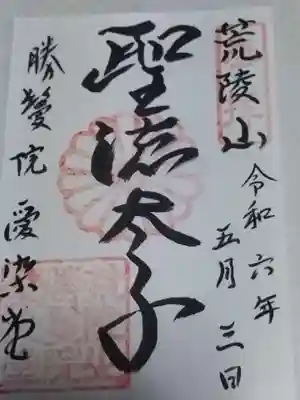 荒陵山
令和六年
五月三日
聖徳太子
勝鬘院 愛染堂